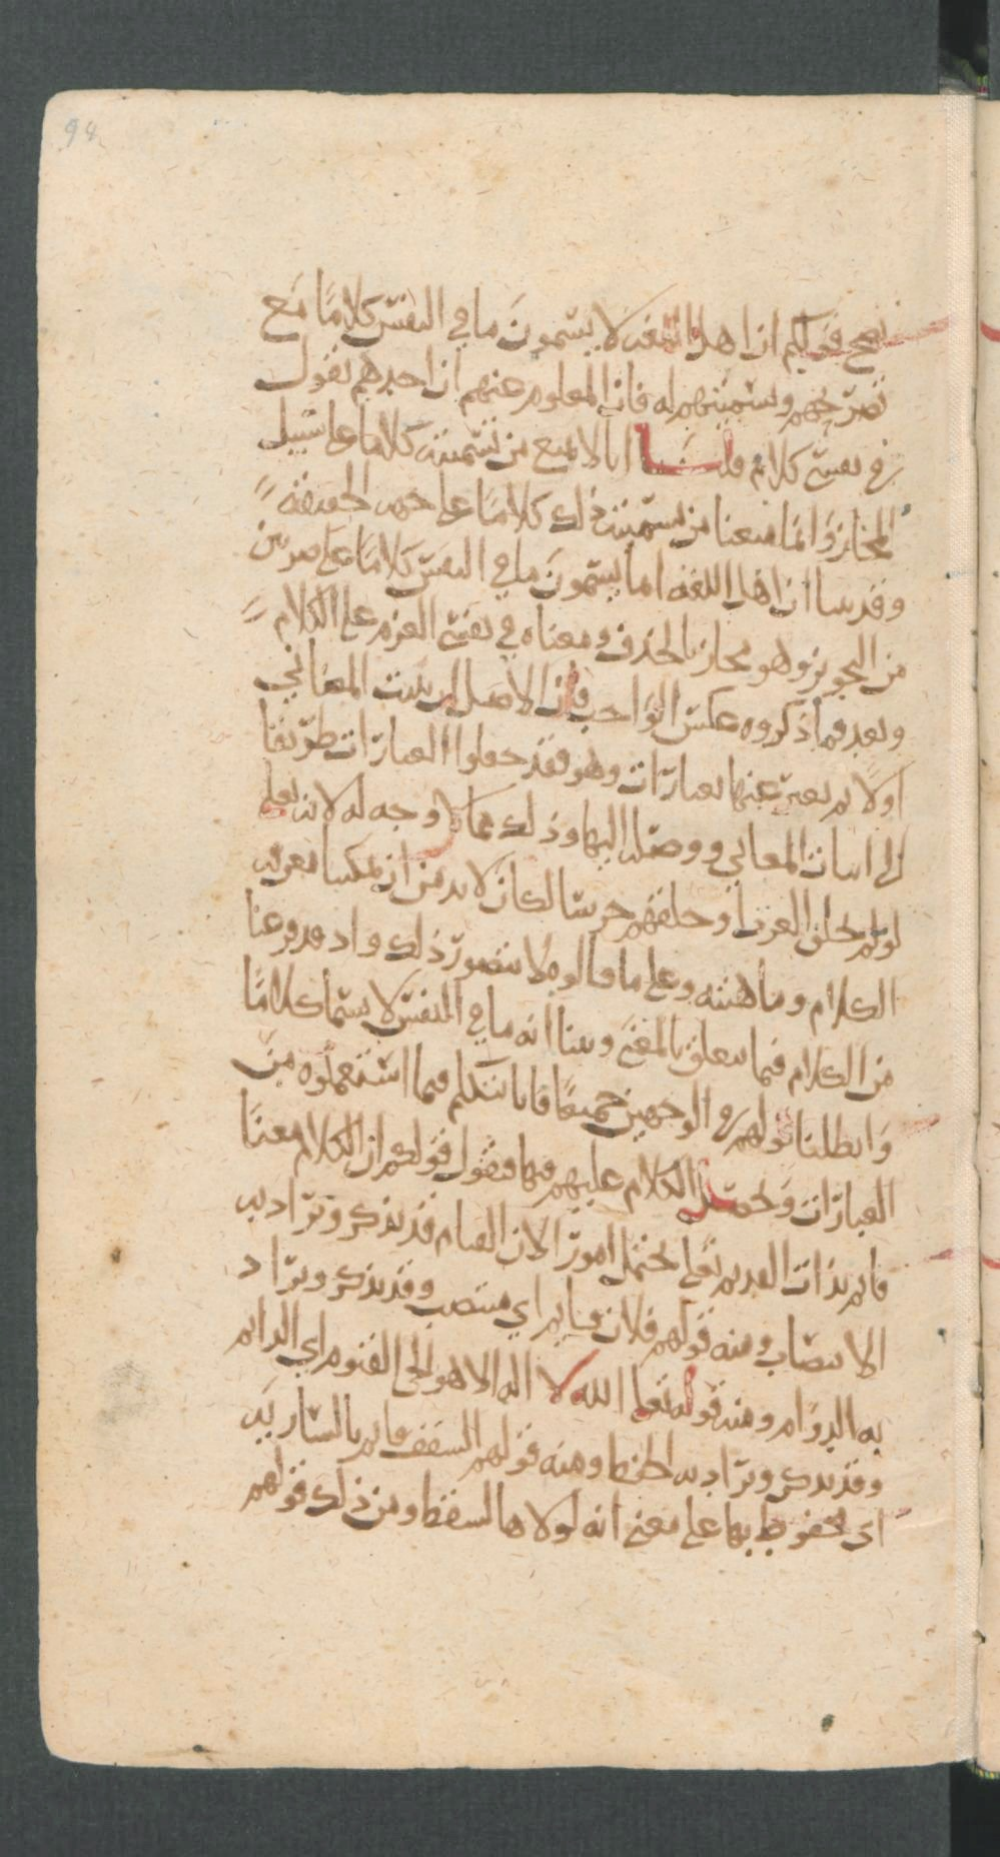 94
يصح قولكم ان اهل اللغه لا يسمون ما في النفس كلاما مع
تصريحهم وتسميتهم له فان المعلوم عنهم ان احدهم يقول
في نفسي كلام قلنا انا لا نمنع من تسميته كلاما على سبيل
المجاز وانما منعنا من تسميته ذلك كلاما على جهه الحقيقه
وقد بينا ان اهل اللغه انما يسمون ما في النفس كلاما على ضرب من
من التجويز وهو مجاز بالحذف ومعناه في نفسي العزم على الكلام
وبعد فما ذكروه عكس الواجب فان الاصل ان يثبت المعاني
اولا ثم يعبر عنها بعبارات وهو فقد جعلوا العبارات طريقا
الى اثبات المعاني ووصله اليها وذلك مما لا وجه له لانه تعلى
لو لم يخلق العرب او خلقهم خرسا لكان لا بد من ان يمكننا معرفه
الكلام وماهيته وعلى ما قالوه لا يتصور ذلك واذ قد فرغنا
من الكلام فيما يتعلق بالمعنى وبينا انه ما في النفس لا يسمى كلاما
وابطلنا قولهم في الوجهين جميعا فانا نتكلم فيما استعملوه من
العبارات ونحصل الكلام عليهم فيها فنقول قولكم ان الكلام معنا
قايم بذات القديم تعلى يحتمل امورا لان القيام قد يذكر ويراد به
الانتصاب ومنه قولهم فلان قايم اي منتصب وقد يذكر ويراد
به الدوام ومنه قوله تعلى الله لا اله الا هو الحي القيوم اي الدايم
وقد يذكر ويراد به الحفظ ومنه قولهم السقف قايم بالساريه
اي محفوظ بها على معنى انه لولاها لسقط ومن ذلك قولهم